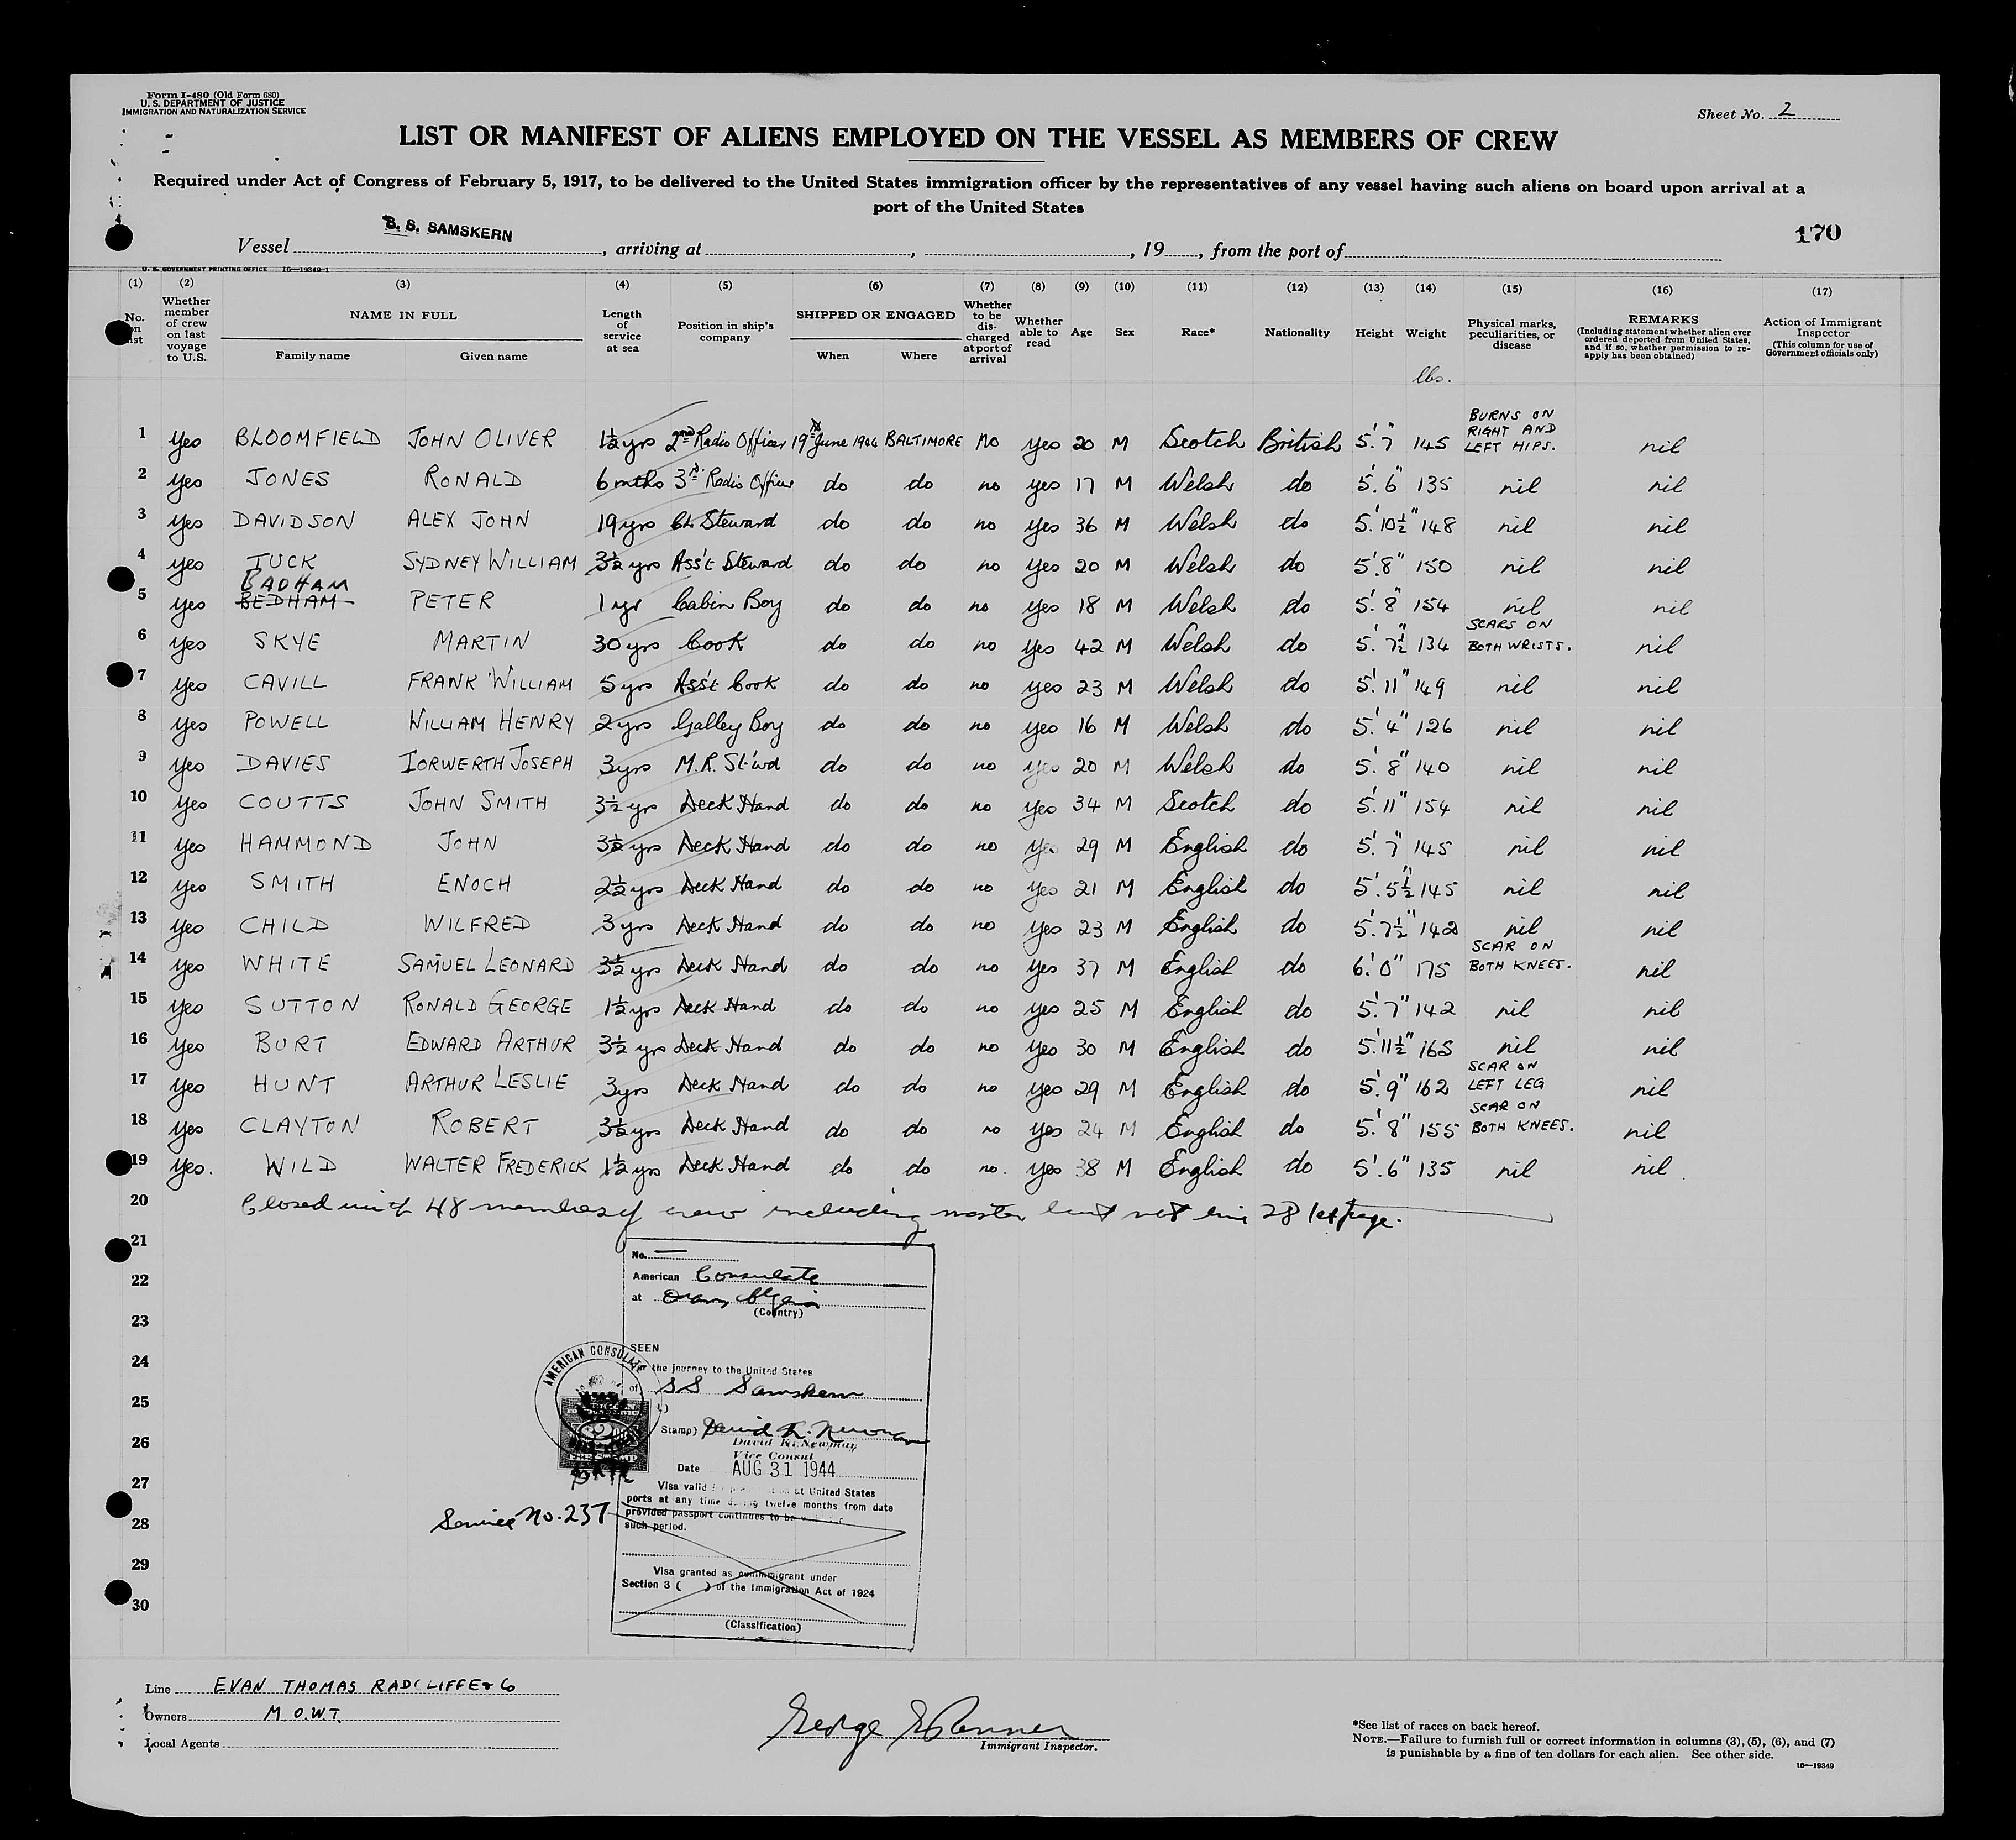 Form I-480 (Old Form 680)
U. S. DEPARTMENT OF JUSTICE
IMMIGRATION AND NATURALIZATION SERVICE
Sheet No. 2
LIST OR MANIFEST OF ALIENS EMPLOYED ON THE VESSEL AS MEMBERS OF CREW
Required under Act of Congress of February 5, 1917, to be delivered to the United States immigration officer by the representatives of any vessel having such aliens on board upon arrival at a
port of the United States
170
Vessel S. S. SAMSKERN, arriving at , , 19 , from the port of
U. S. GOVERNMENT PRINTING OFFICE 16—19349-1
(1) (2) (3) (4) (5) (6) (7) (8) (9) (10) (11) (12) (13) (14) (15) (16) (17)
No. on list
Whether member of crew on last voyage to U.S.
NAME IN FULL
Family name Given name
Length of service at sea
Position in ship's company
SHIPPED OR ENGAGED
When Where
Whether to be discharged at port of arrival
Whether able to read
Age Sex Race* Nationality Height Weight
Physical marks, peculiarities, or disease
REMARKS
(Including statement whether alien ever ordered deported from United States, and if so, whether permission to reapply has been obtained)
Action of Immigrant Inspector
(This column for use of Government officials only)
lbs.
1 yes BLOOMFIELD JOHN OLIVER 1½ yrs 2nd Radio Officer 19th June 1944 BALTIMORE no yes 20 M Scotch British 5'.7" 145 BURNS ON RIGHT AND LEFT HIPS. nil
2 yes JONES RONALD 6 mths 3rd Radio Officer do do no yes 17 M Welsh do 5'.6" 135 nil nil
3 yes DAVIDSON ALEX JOHN 19 yrs Ch. Steward do do no yes 36 M Welsh do 5'.10½" 148 nil nil
4 yes TUCK SYDNEY WILLIAM 3½ yrs Ass't Steward do do no yes 20 M Welsh do 5'.8" 150 nil nil
BADHAM
5 yes BEDHAM PETER 1 yr Cabin Boy do do no yes 18 M Welsh do 5'.8" 154 nil nil
6 yes SKYE MARTIN 30 yrs Cook do do no yes 42 M Welsh do 5'.7½" 134 SCARS ON BOTH WRISTS. nil
7 yes CAVILL FRANK WILLIAM 5 yrs Ass't Cook do do no yes 23 M Welsh do 5'.11" 149 nil nil
8 yes POWELL WILLIAM HENRY 2 yrs Galley Boy do do no yes 16 M Welsh do 5'.4" 126 nil nil
9 yes DAVIES IORWERTH JOSEPH 3 yrs M.R. St'wd do do no yes 20 M Welsh do 5'.8" 140 nil nil
10 yes COUTTS JOHN SMITH 3½ yrs Deck Hand do do no yes 34 M Scotch do 5'.11" 154 nil nil
11 yes HAMMOND JOHN 3½ yrs Deck Hand do do no yes 29 M English do 5'.7" 145 nil nil
12 yes SMITH ENOCH 2½ yrs Deck Hand do do no yes 21 M English do 5'.5½" 145 nil nil
13 yes CHILD WILFRED 3 yrs Deck Hand do do no yes 23 M English do 5'.7½" 142 nil nil
14 yes WHITE SAMUEL LEONARD 3½ yrs Deck Hand do do no yes 37 M English do 6'.0" 175 SCAR ON BOTH KNEES. nil
15 yes SUTTON RONALD GEORGE 1½ yrs Deck Hand do do no yes 25 M English do 5'.7" 142 nil nil
16 yes BURT EDWARD ARTHUR 3½ yrs Deck Hand do do no yes 30 M English do 5'.11½" 165 nil nil
17 yes HUNT ARTHUR LESLIE 3 yrs Deck Hand do do no yes 29 M English do 5'.9" 162 SCAR ON LEFT LEG nil
18 yes CLAYTON ROBERT 3½ yrs Deck Hand do do no yes 24 M English do 5'.8" 155 SCAR ON BOTH KNEES. nil
19 yes. WILD WALTER FREDERICK 1½ yrs Deck Hand do do no. yes 38 M English do 5'.6" 135 nil nil
20 Closed with 48 members of crew including master but not line 28 1st page.
21
22
23
24
25
26
27
28
29
30
No. —
American Consulate
at Oran, Algeria
(Country)
SEEN
the journey to the United States
of SS Samskern
Stamp) David K. Newman
David K. Newman
Vice Consul
Date AUG 31 1944
Visa valid United States
ports at any time during twelve months from date
provided passport continues to be
such period.
Visa granted as nonimmigrant under
Section 3 ( ) of the Immigration Act of 1924
(Classification)
AMERICAN CONSULATE
Service No. 237
Line EVAN THOMAS RADCLIFFE & Co
Owners M.O.W.T.
Local Agents
George
Immigrant Inspector.
*See list of races on back hereof.
NOTE.—Failure to furnish full or correct information in columns (3), (5), (6), and (7)
is punishable by a fine of ten dollars for each alien. See other side.
16—19349